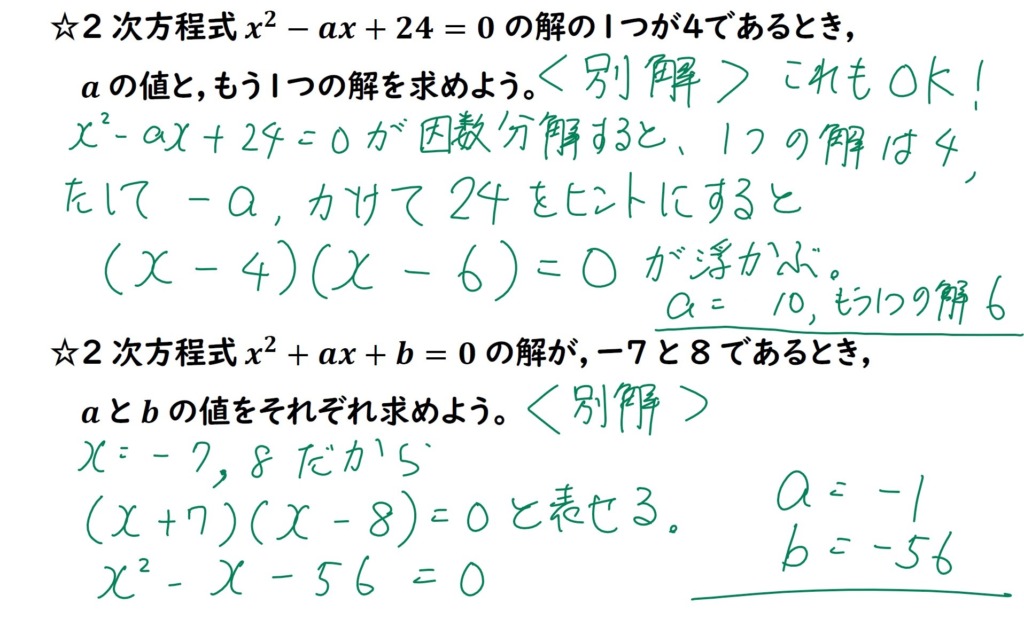 ☆2次方程式 x² − ax + 24 = 0 の解の1つが4であるとき,
aの値と,もう1つの解を求めよう。<別解> これもOK!
x² - ax + 24 = 0 が因数分解すると、1つの解は4,
たして -a, かけて 24 をヒントにすると
(x - 4)(x - 6) = 0 が浮かぶ。
a = 10, もう1つの解 6
☆2次方程式 x² + ax + b = 0 の解が, −7と8であるとき,
aとbの値をそれぞれ求めよう。<別解>
x = -7, 8 だから
(x + 7)(x - 8) = 0 と表せる。
x² - x - 56 = 0
a = -1
b = -56